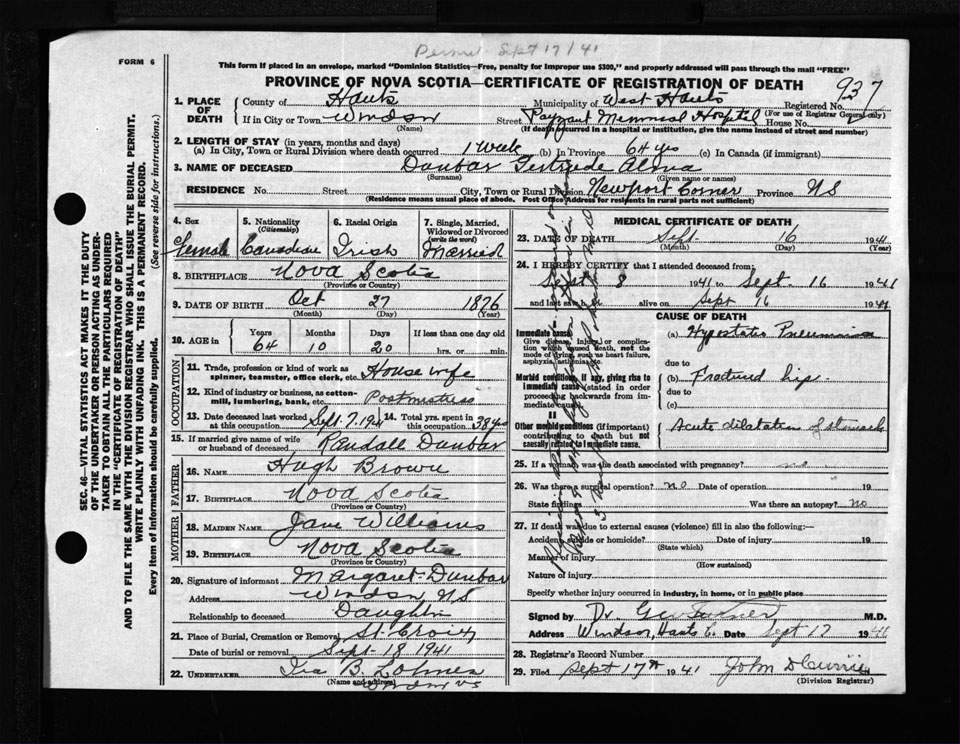 Permit Sept 17/41
FORM 6
This form if placed in an envelope, marked "Dominion Statistics—Free, penalty for improper use $300," and properly addressed will pass through the mail "FREE"
PROVINCE OF NOVA SCOTIA—CERTIFICATE OF REGISTRATION OF DEATH
937
SEC. 46—VITAL STATISTICS ACT MAKES IT THE DUTY
OF THE UNDERTAKER OR PERSON ACTING AS UNDER-
TAKER TO OBTAIN ALL THE PARTICULARS REQUIRED
IN THE "CERTIFICATE OF REGISTRATION OF DEATH"
AND TO FILE THE SAME WITH THE DIVISION REGISTRAR WHO SHALL ISSUE THE BURIAL PERMIT.
WRITE PLAINLY WITH UNFADING INK. THIS IS A PERMANENT RECORD.
Every item of Information should be carefully supplied. (See reverse side for instructions.)
1. PLACE OF DEATH
County of Hants Municipality of West Hants Registered No.
(For use of Registrar General only)
If in City or Town Windsor Street Payzant Memorial Hospital House No.
(Name) (If death occurred in a hospital or institution, give the name instead of street and number)
2. LENGTH OF STAY (in years, months and days)
(a) In City, Town or Rural Division where death occurred 1 Week (b) In Province 64 yrs (c) In Canada (if immigrant)
3. NAME OF DECEASED Dunbar Gertrude
(Surname) (Given name or names)
RESIDENCE No. Street City, Town or Rural Division Newport Corner Province NS
(Residence means usual place of abode. Post Office Address for residents in rural parts not sufficient)
4. Sex Female
5. Nationality (Citizenship) Canadian
6. Racial Origin Irish
7. Single, Married, Widowed or Divorced (write the word) Married
8. BIRTHPLACE Nova Scotia
(Province or Country)
9. DATE OF BIRTH Oct 27 1876
(Month) (Day) (Year)
10. AGE in Years Months Days If less than one day old
64 10 20 hrs. or min.
OCCUPATION
11. Trade, profession or kind of work as spinner, teamster, office clerk, etc. House wife
12. Kind of industry or business, as cotton-mill, lumbering, bank, etc. Postmistress
13. Date deceased last worked at this occupation Sept. 7. 1941 14. Total yrs. spent in this occupation 38 yrs
15. If married give name of wife or husband of deceased Randall Dunbar
FATHER
16. NAME Hugh Brown
17. BIRTHPLACE Nova Scotia
(Province or Country)
MOTHER
18. MAIDEN NAME Jane Williams
19. BIRTHPLACE Nova Scotia
(Province or Country)
20. Signature of informant Margaret Dunbar
Address Windsor NS
Relationship to deceased Daughter
21. Place of Burial, Cremation or Removal St. Croix
Date of burial or removal Sept - 18 1941
22. UNDERTAKER Ira B. Lohnes
(Name and address) Windsor NS
MEDICAL CERTIFICATE OF DEATH
23. DATE OF DEATH Sept. 16 1941
(Month) (Day) (Year)
24. I HEREBY CERTIFY that I attended deceased from:
Sept 8 1941 to Sept. 16 1941
and last saw her alive on Sept 16 1941
CAUSE OF DEATH
Immediate cause
Give disease, injury, or complication which caused death, not the mode of dying, such as heart failure, asphyxia, asthenia, etc.
(a) Hypostatic Pneumonia
due to
Morbid conditions, if any, giving rise to immediate cause (stated in order proceeding backwards from immediate cause).
(b) Fractured hip.
due to
(c)
II
Other morbid conditions (if important) contributing to death but not causally related to immediate cause.
Acute dilatation of stomach
25. If a woman was the death associated with pregnancy? no
26. Was there a surgical operation? no Date of operation 19
State findings Was there an autopsy? no
27. If death was due to external causes (violence) fill in also the following:—
Accident, suicide or homicide? Date of injury 19
(State which)
Manner of injury
(How sustained)
Nature of injury
Specify whether injury occurred in industry, in home, or in public place
Signed by Dr. M.D.
Address Windsor, Hants Co. Date Sept 17 19
28. Registrar's Record Number
29. Filed Sept 17th 1941 John D Currie
(Division Registrar)